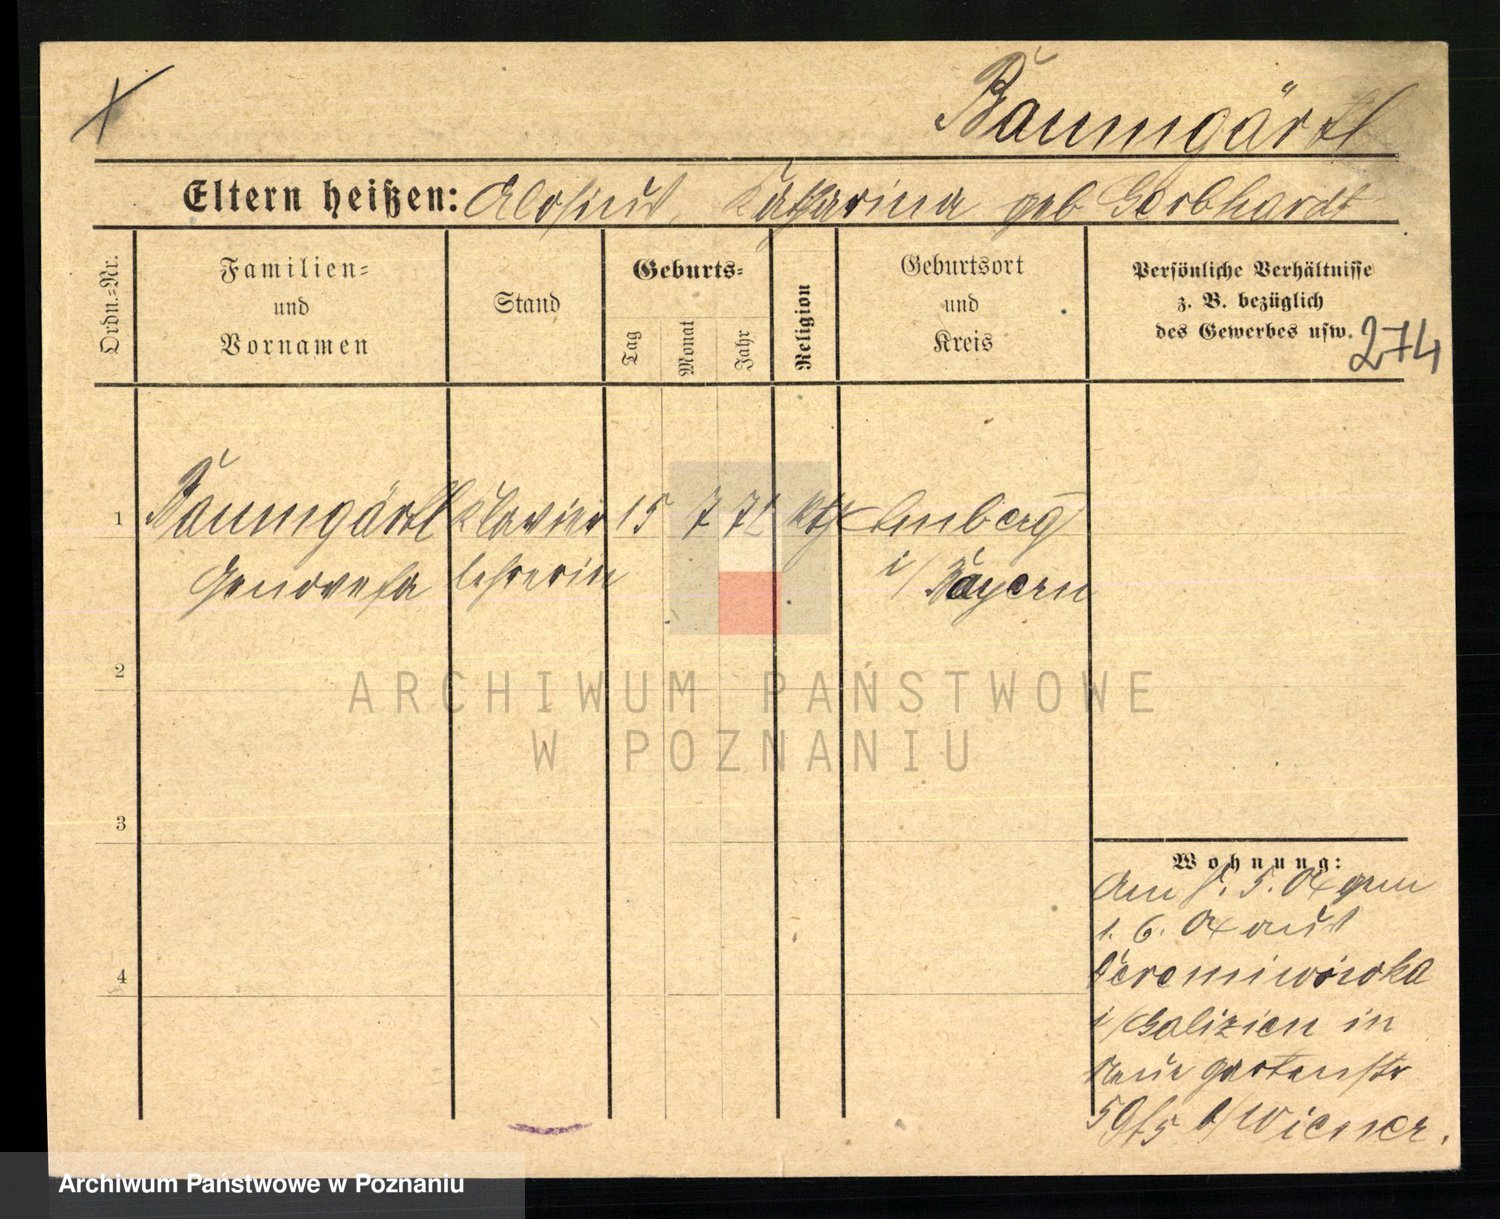 Baumgärtl
Eltern heißen: Aloysius, Katharina geb Gerbhardt
Ordn.-Nr.
Familien-
und
Vornamen
Stand
Geburts-
Tag
Monat
Jahr
Religion
Geburtsort
und
Kreis
Persönliche Verhältnisse
z. B. bezüglich
des Gewerbes usw.
274
1 Baumgärtl Klavier 15 7 72 kth Amberg
Genovefa lehrerin i/Bayern
2
ARCHIWUM PAŃSTWOWE
W POZNANIU
3
Wohnung:
Am 5. 04 gem
1. 6. 04 aus
4
i/Galizien in
Neue Gartenstr
59 b/Wiener.
Archiwum Państwowe w Poznaniu